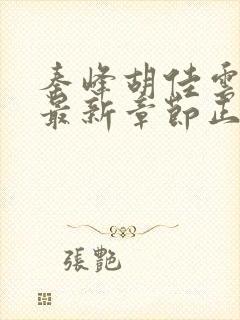 秦峰胡佳雲
最新章節正
張艷